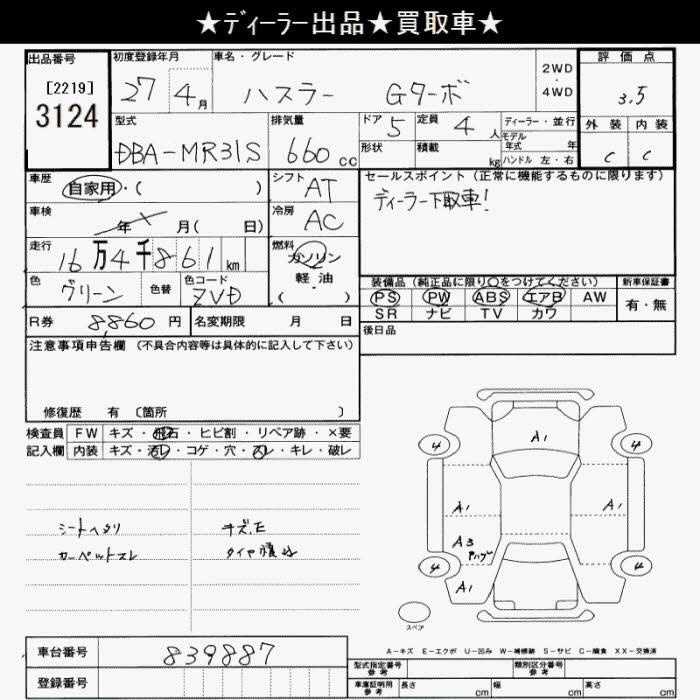 ★ディーラー出品★買取車★
出品番号 初度登録年月 車名・グレード 評価点
[2219] 27 4月 ハスラー Gターボ 2WD・4WD 3.5
3124 型式 排気量 ドア 定員 ディーラー・並行 外装 内装
DBA-MR31S 660cc 5 4人 モデル年式 年 C C
形状 積載 kg ハンドル 左・右
車歴 自家用・( ) シフト AT セールスポイント(正常に機能するものに限ります)
ディーラー下取車!
車検 年 月( 日) 冷房 AC
走行 16万4千861km 燃料 ガソリン
軽・油
( )
色 グリーン 色替 色コード ZVD
装備品(純正品に限り○をつけてください) 新車保証書
PS PW ABS エアB AW 有・無
SR ナビ TV カワ
R券 8,860円 名変期限 月 日 後日品
注意事項申告欄(不具合内容等は具体的に記入して下さい)
修復歴 有 〔箇所 〕
検査員 FW キズ・飛石・ヒビ割・リペア跡・×要
記入欄 内装 キズ・汚レ・コゲ・穴・スレ・キレ・破レ
シートヘタリ キズ,E
カーペットスレ タイヤ積込
4 A1 4
A1 A1
A3
4 4
A1
スペア
A-キズ E-エクボ U-凹み W-補修跡 S-サビ C-腐食 XX-交換済
車台番号 839887
登録番号
型式指定番号 参考 類別区分番号 参考
車庫証明用 参考 長さ cm 幅 cm 高さ cm